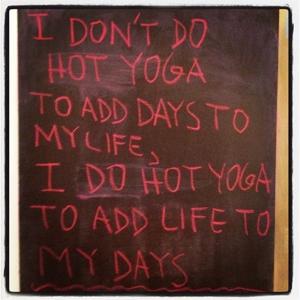 I DON'T DO
HOT YOGA
TO ADD DAYS TO
MY LIFE,
I DO HOT YOGA
TO ADD LIFE TO
MY DAYS